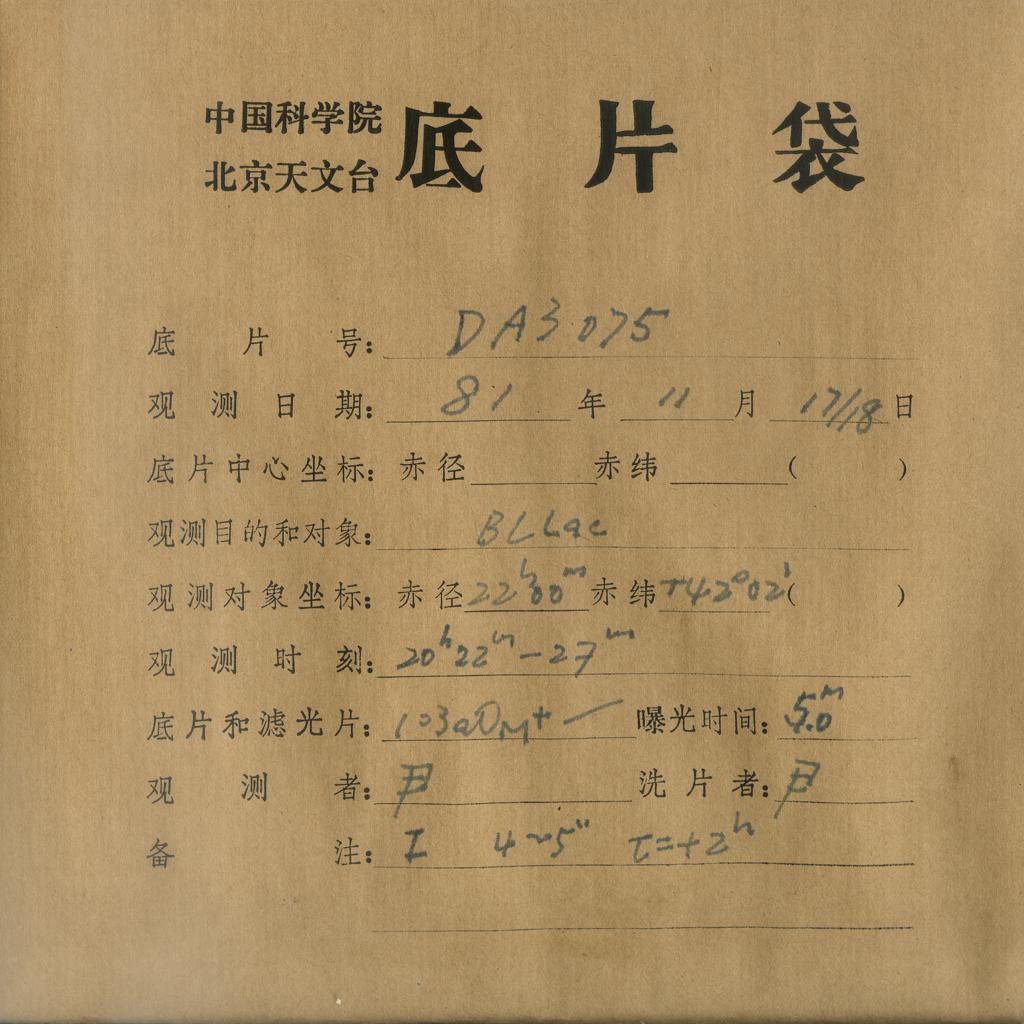 中国科学院
北京天文台
底片袋
底片号: DA3075
观测日期: 81年 11月 17/18日
底片中心坐标: 赤径 赤纬 ( )
观测目的和对象: BLLac
观测对象坐标: 赤径22ʰ00ᵐ 赤纬+42°02′( )
观测时刻: 20ʰ22ᵐ-27ᵐ
底片和滤光片: 103aO 曝光时间: 5.0ᵐ
观测者: 洗片者:
备注: I 4~5" τ=+2ʰ